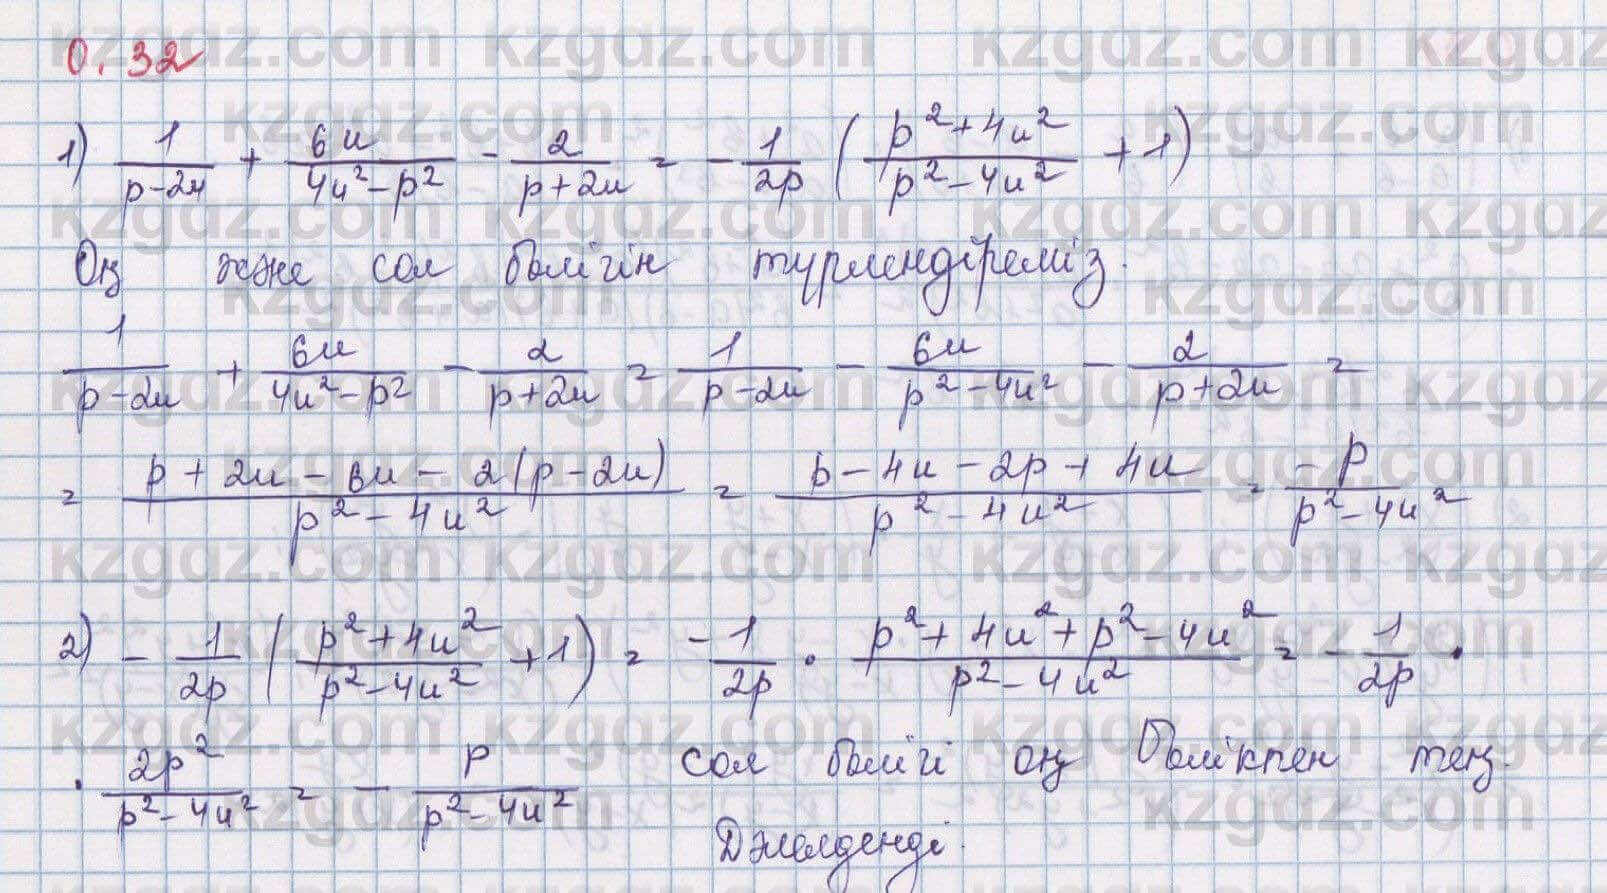 0.32
1) 1/(p-2u) + 6u/(4u²-p²) - 2/(p+2u) = -1/2p ( (p²+4u²)/(p²-4u²) + 1 )
Оң және сол бөлігін түрлендіреміз.
1/(p-2u) + 6u/(4u²-p²) - 2/(p+2u) = 1/(p-2u) - 6u/(p²-4u²) - 2/(p+2u) =
= (p+2u-6u-2(p-2u))/(p²-4u²) = (p-4u-2p+4u)/(p²-4u²) = -p/(p²-4u²)
2) -1/2p ( (p²+4u²)/(p²-4u²) + 1 ) = -1/2p · (p²+4u²+p²-4u²)/(p²-4u²) = -1/2p ·
· 2p²/(p²-4u²) = - p/(p²-4u²) сол бөлігі оң бөлікпен тең.
Дәлелденді.
kzgdz.com